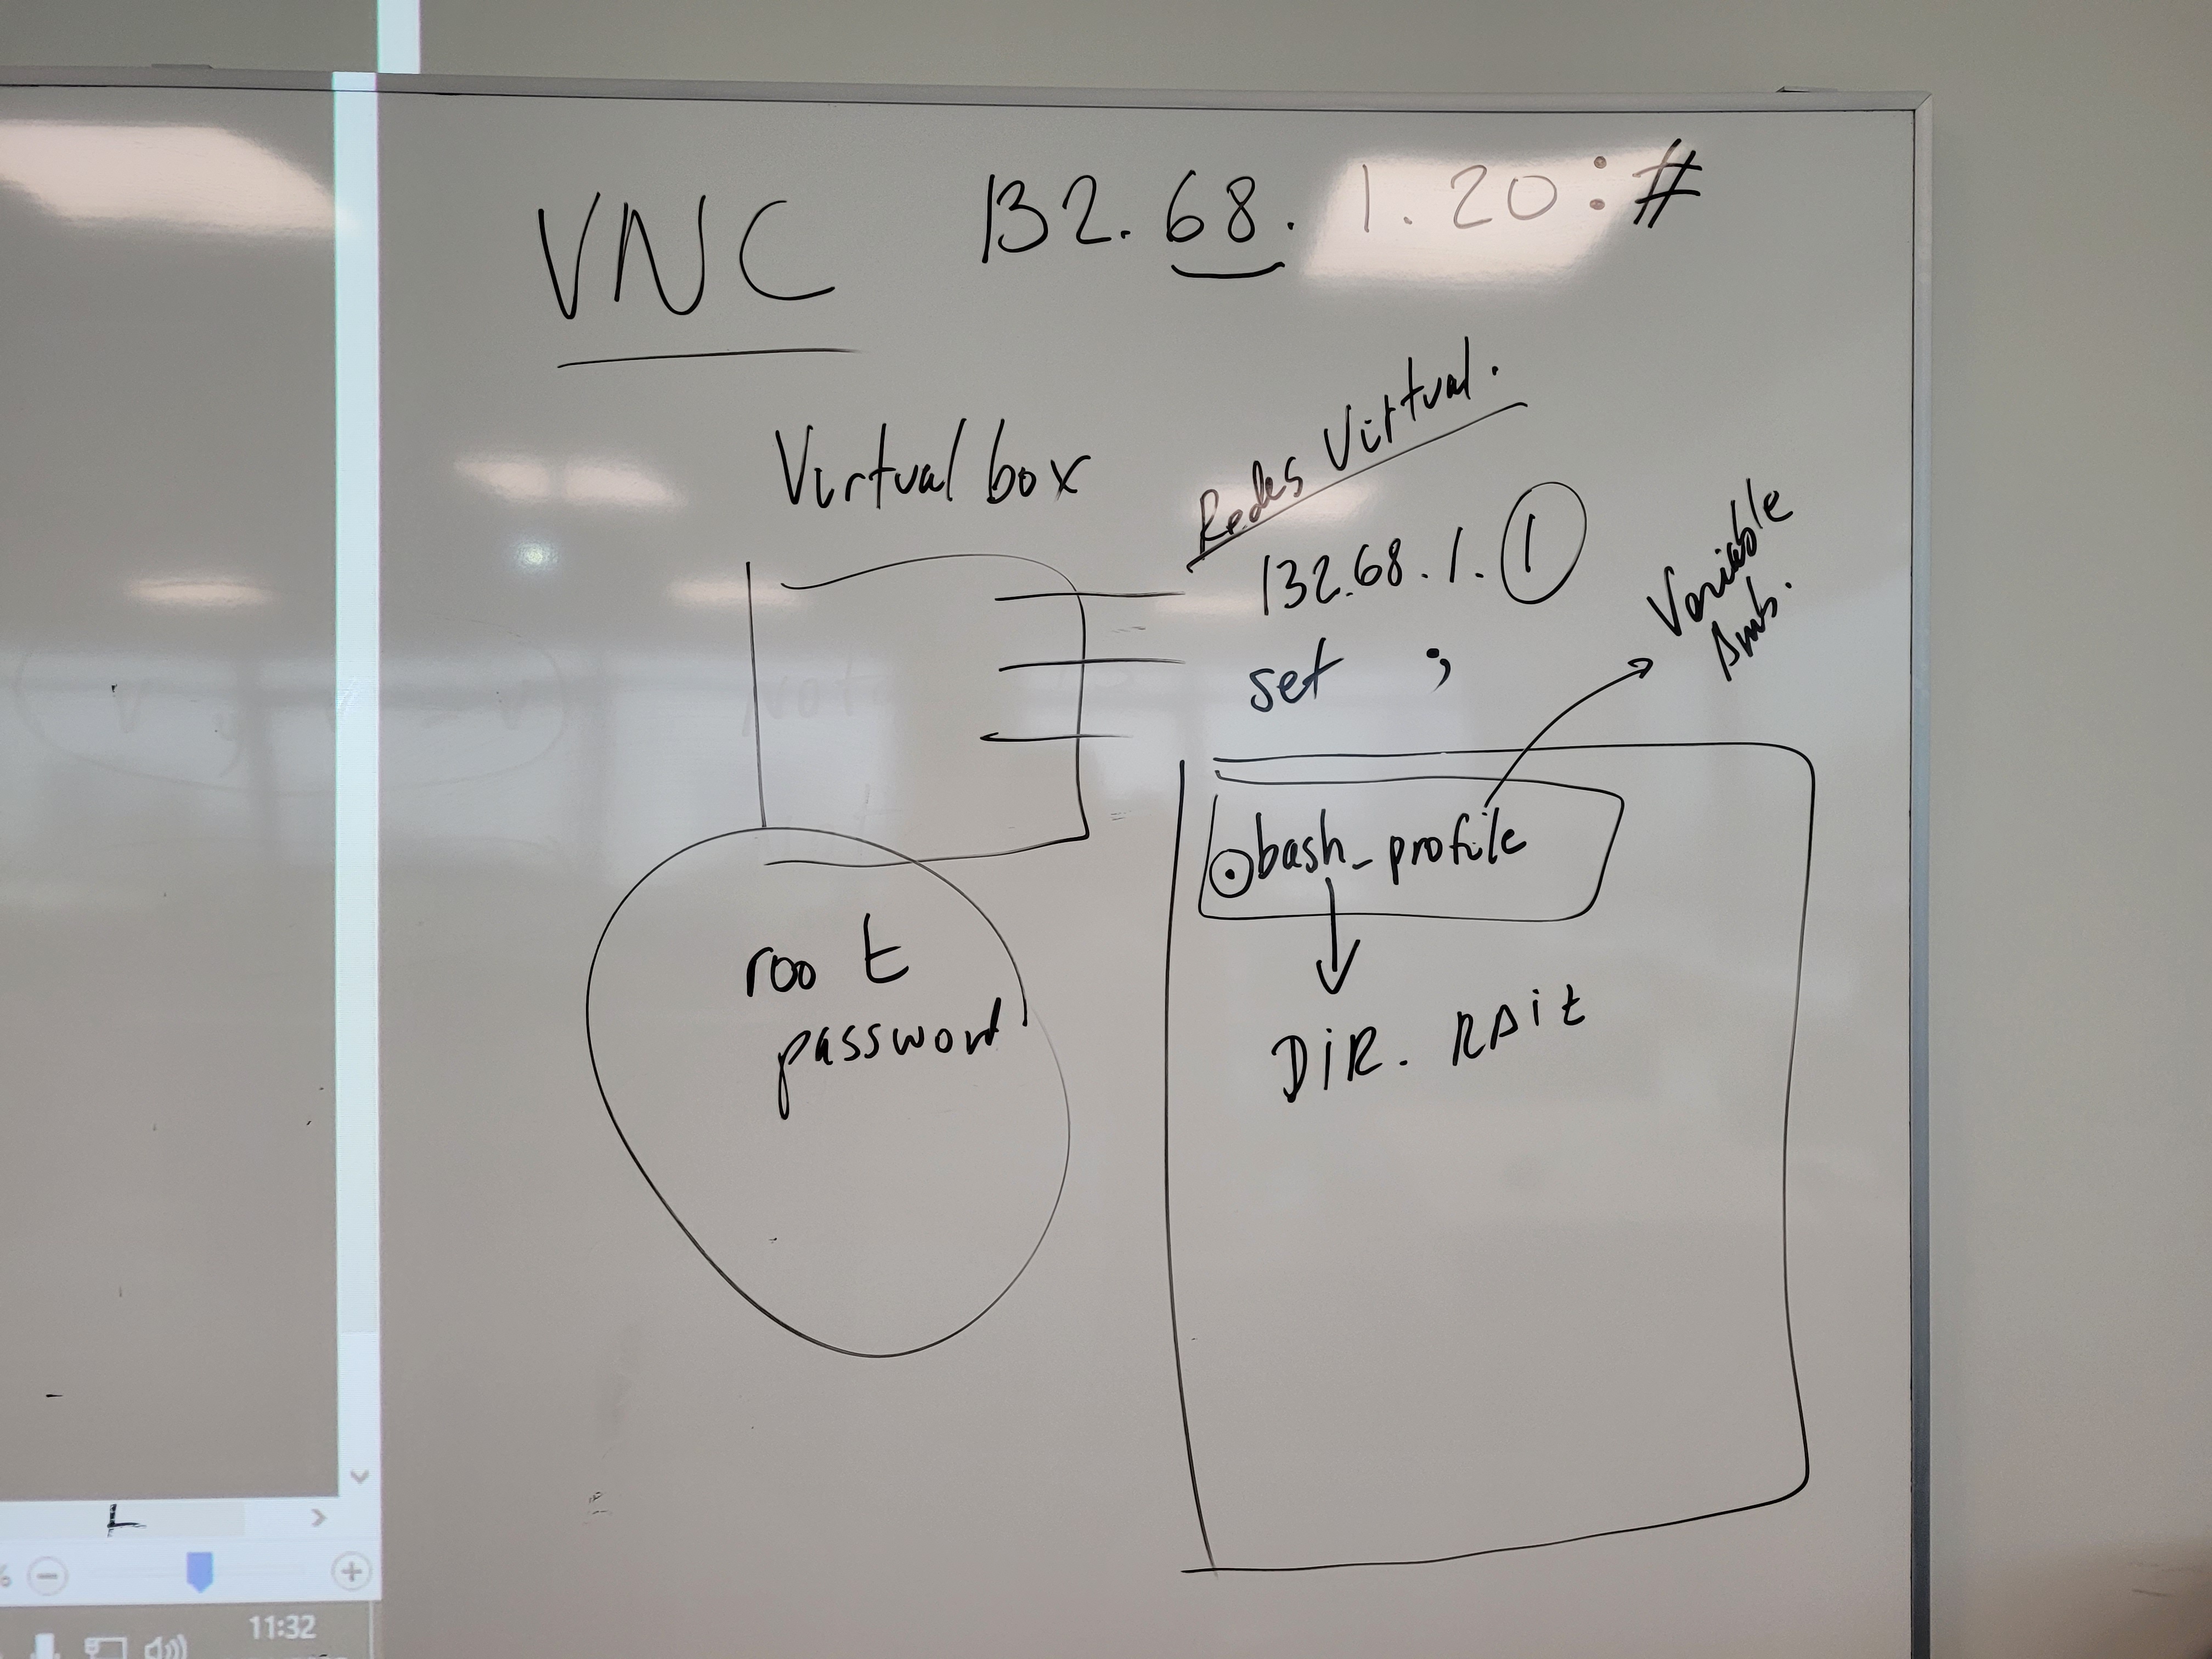 VNC
132.68.1.20:#
Virtual box
Redes Virtual.
132.68.1.1
set ;
Variable
Amb.
.bash_profile
DiR. RAiz
root
password
11:32